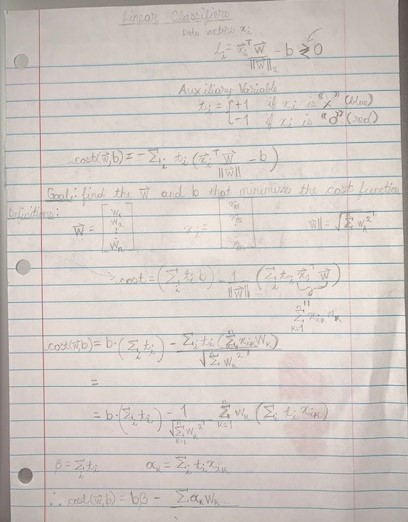 Linear Classifiers
Data vectors xᵢ
lᵢ = x⃗ᵢᵀ w⃗ / ||w⃗||₂ - b ≷ 0
Auxiliary Variable
tᵢ = { +1 if xᵢ is "x" (blue)
-1 if xᵢ is "o" (red)
cost(w⃗,b) = - Σᵢ tᵢ (x⃗ᵢᵀ w⃗ / ||w⃗|| - b)
Goal: find the w⃗ and b that minimizes the cost function
Definitions:
w⃗ = [w₁ w₂ ⋮ wₙ] xᵢ = [xᵢ₁ xᵢ₂ ⋮ xᵢₙ] ||w⃗|| = √(Σ wₖ²)
→ cost = (Σᵢ tᵢ b) - 1/||w⃗|| (Σᵢ tᵢ x⃗ᵢ w⃗)
Σₖ₌₁ⁿ xᵢₖ wₖ
cost(w⃗,b) = b·(Σᵢ tᵢ) - Σᵢ tᵢ (Σₖ₌₁ⁿ xᵢₖ wₖ) / √(Σₖ₌₁ⁿ wₖ²)
=
= b·(Σᵢ tᵢ) - 1/√(Σₖ₌₁ⁿ wₖ²) Σₖ₌₁ⁿ wₖ (Σᵢ tᵢ xᵢₖ)
β = Σᵢ tᵢ αₖ = Σᵢ tᵢ xᵢₖ
∴ cost(w⃗,b) = bβ - Σ αₖ wₖ